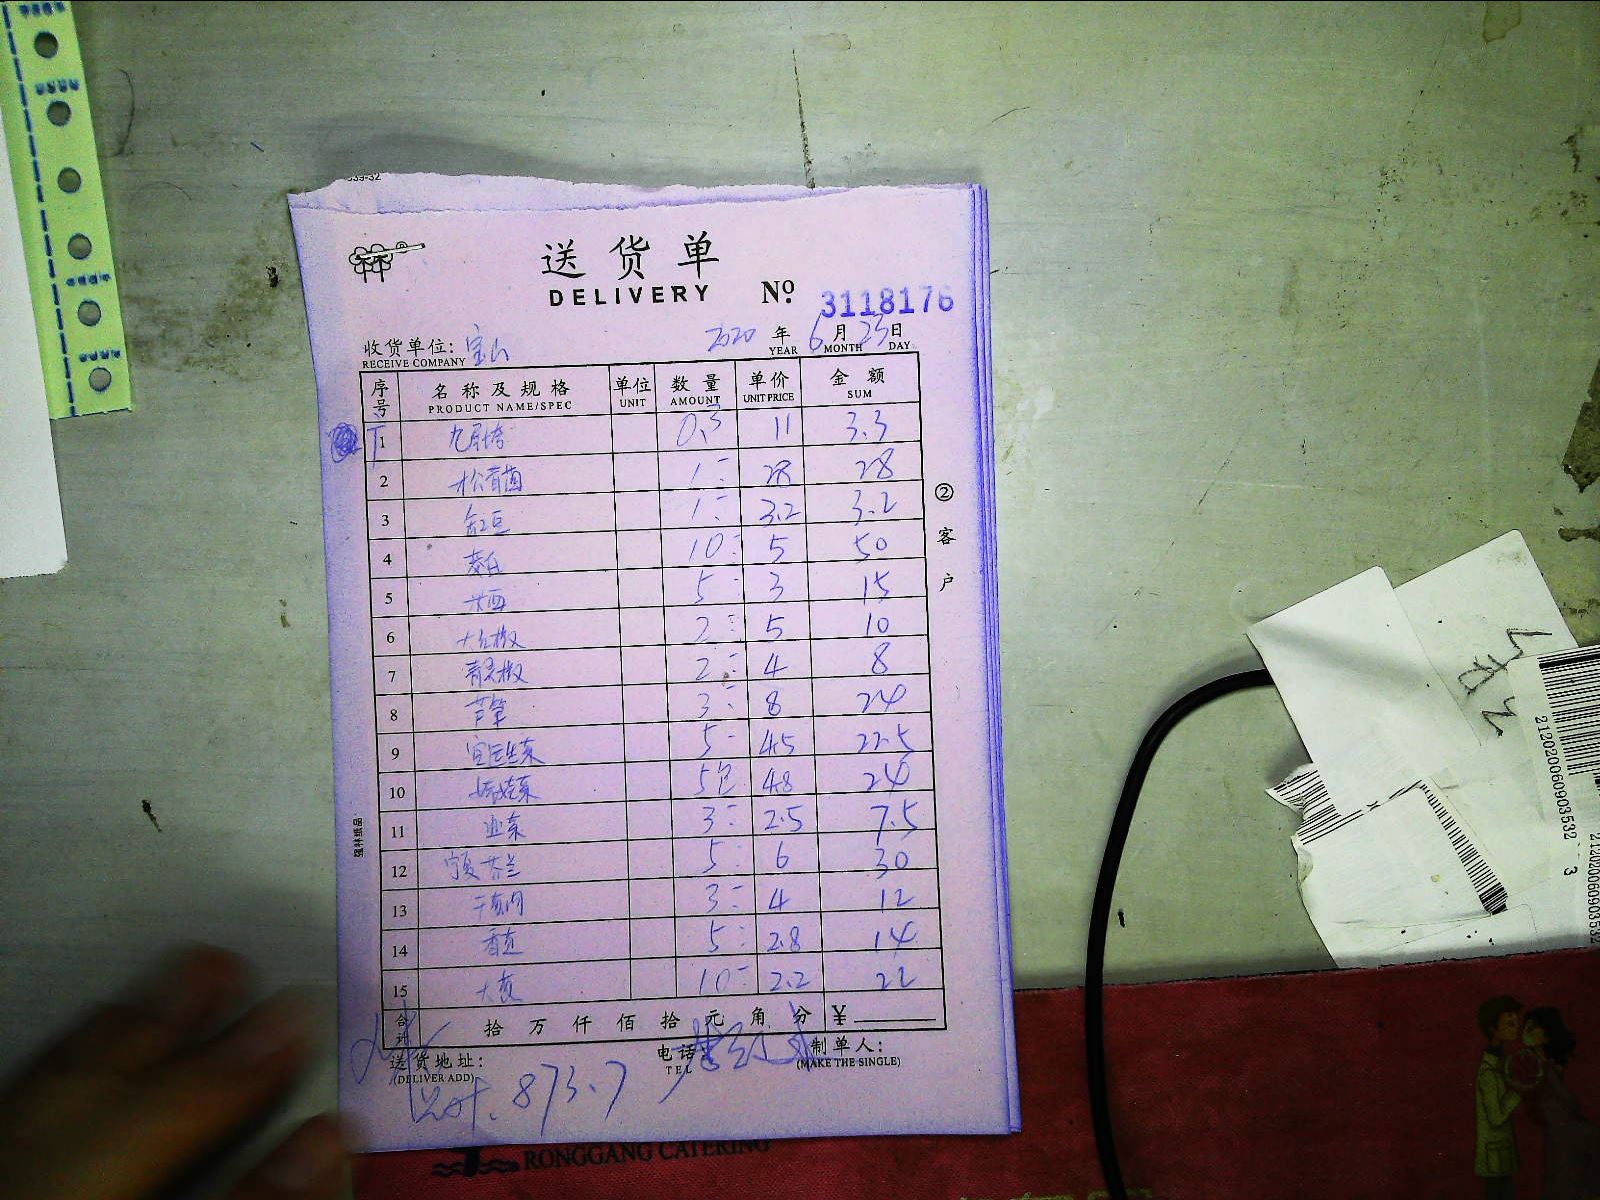 送货单
DELIVERY № 3118176
收货单位: 宝山 2020 年 6 月 23 日
RECEIVE COMPANY YEAR MONTH DAY
序号 名称及规格 单位 数量 单价 金额
PRODUCT NAME/SPEC UNIT AMOUNT UNIT PRICE SUM
1 0.3 11 3.3
2 松茸菌 1 28 28
3 缸豆 1 3.2 3.2
4 10 5 50
5 5 3 15
6 大红椒 2 5 10
7 青尖椒 2 4 8
8 芦笋 3 8 24
9 5 4.5 22.5
10 娃娃菜 5包 4.8 24
11 3 2.5 7.5
12 芥兰 5 6 30
13 3 4 12
14 5 2.8 14
15 大葱 10 2.2 22
合计 拾 万 仟 佰 拾 元 角 分 ¥
送货地址: 电话: 制单人:
(DELIVER ADD) TEL (MAKE THE SINGLE)
873.7
②客户
强林纸品
RONGGANG CATERING
212020060903532 3
212020060903532